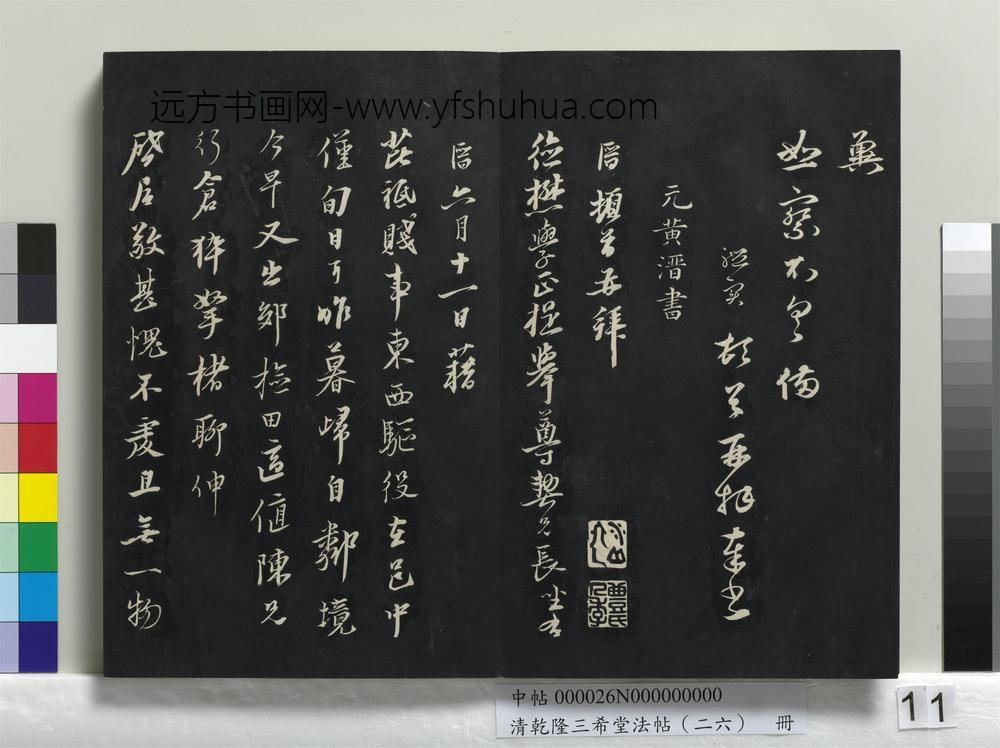 远方书画网-www.yfshuhua.com
冀
恕察不具備
胡 再拜奉書
元黃溍書
溍頓首再拜
德懋學正提擧尊契兄長坐右
溍六月十一日藉
芘祗賤事東西驅役在邑中
僅旬日耳昨暮歸自鄰境
今早又出郊撿田適值陳兄
行倉猝拏楮聊伸
啓居敬甚愧不虔且無一物
中帖 000026N000000000
清乾隆三希堂法帖(二六) 冊
11